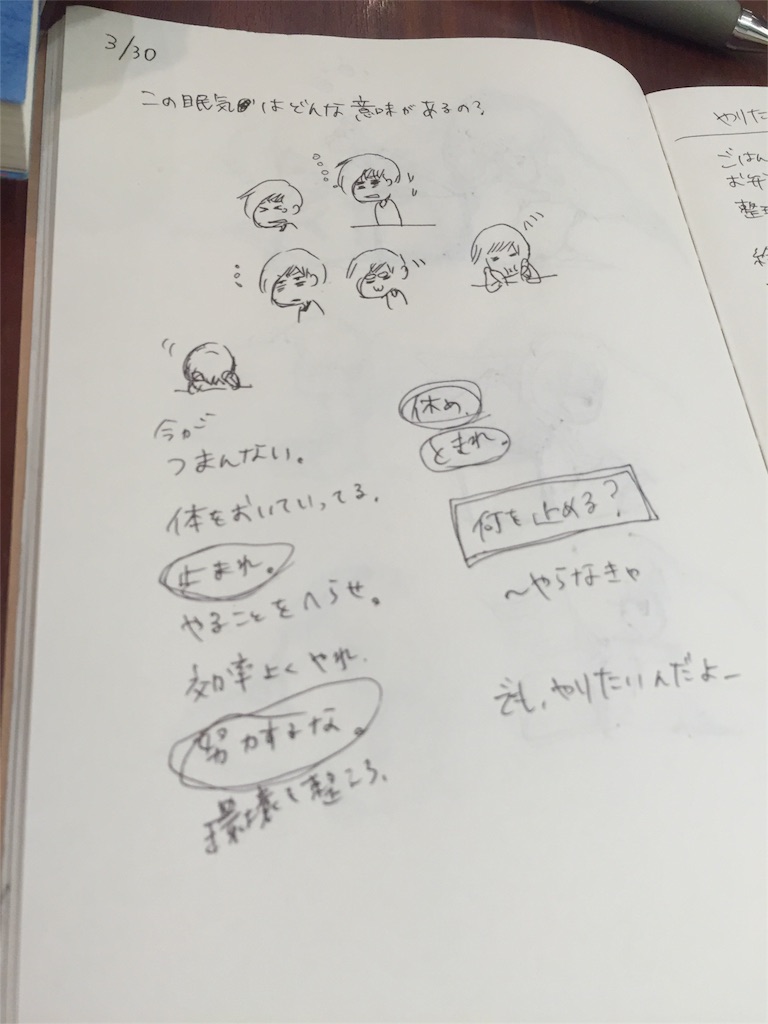 3/30
この眠気はどんな意味があるの?
今が
つまんない。
体をおいていってる。
止まれ。
やることをへらせ。
効率よくやれ.
努力するな。
環境を整ころ.
休め.
とまれ。
何を止める?
～やらなきゃ
でも、やりたいんだよー
やりた
ごはん
お弁
整